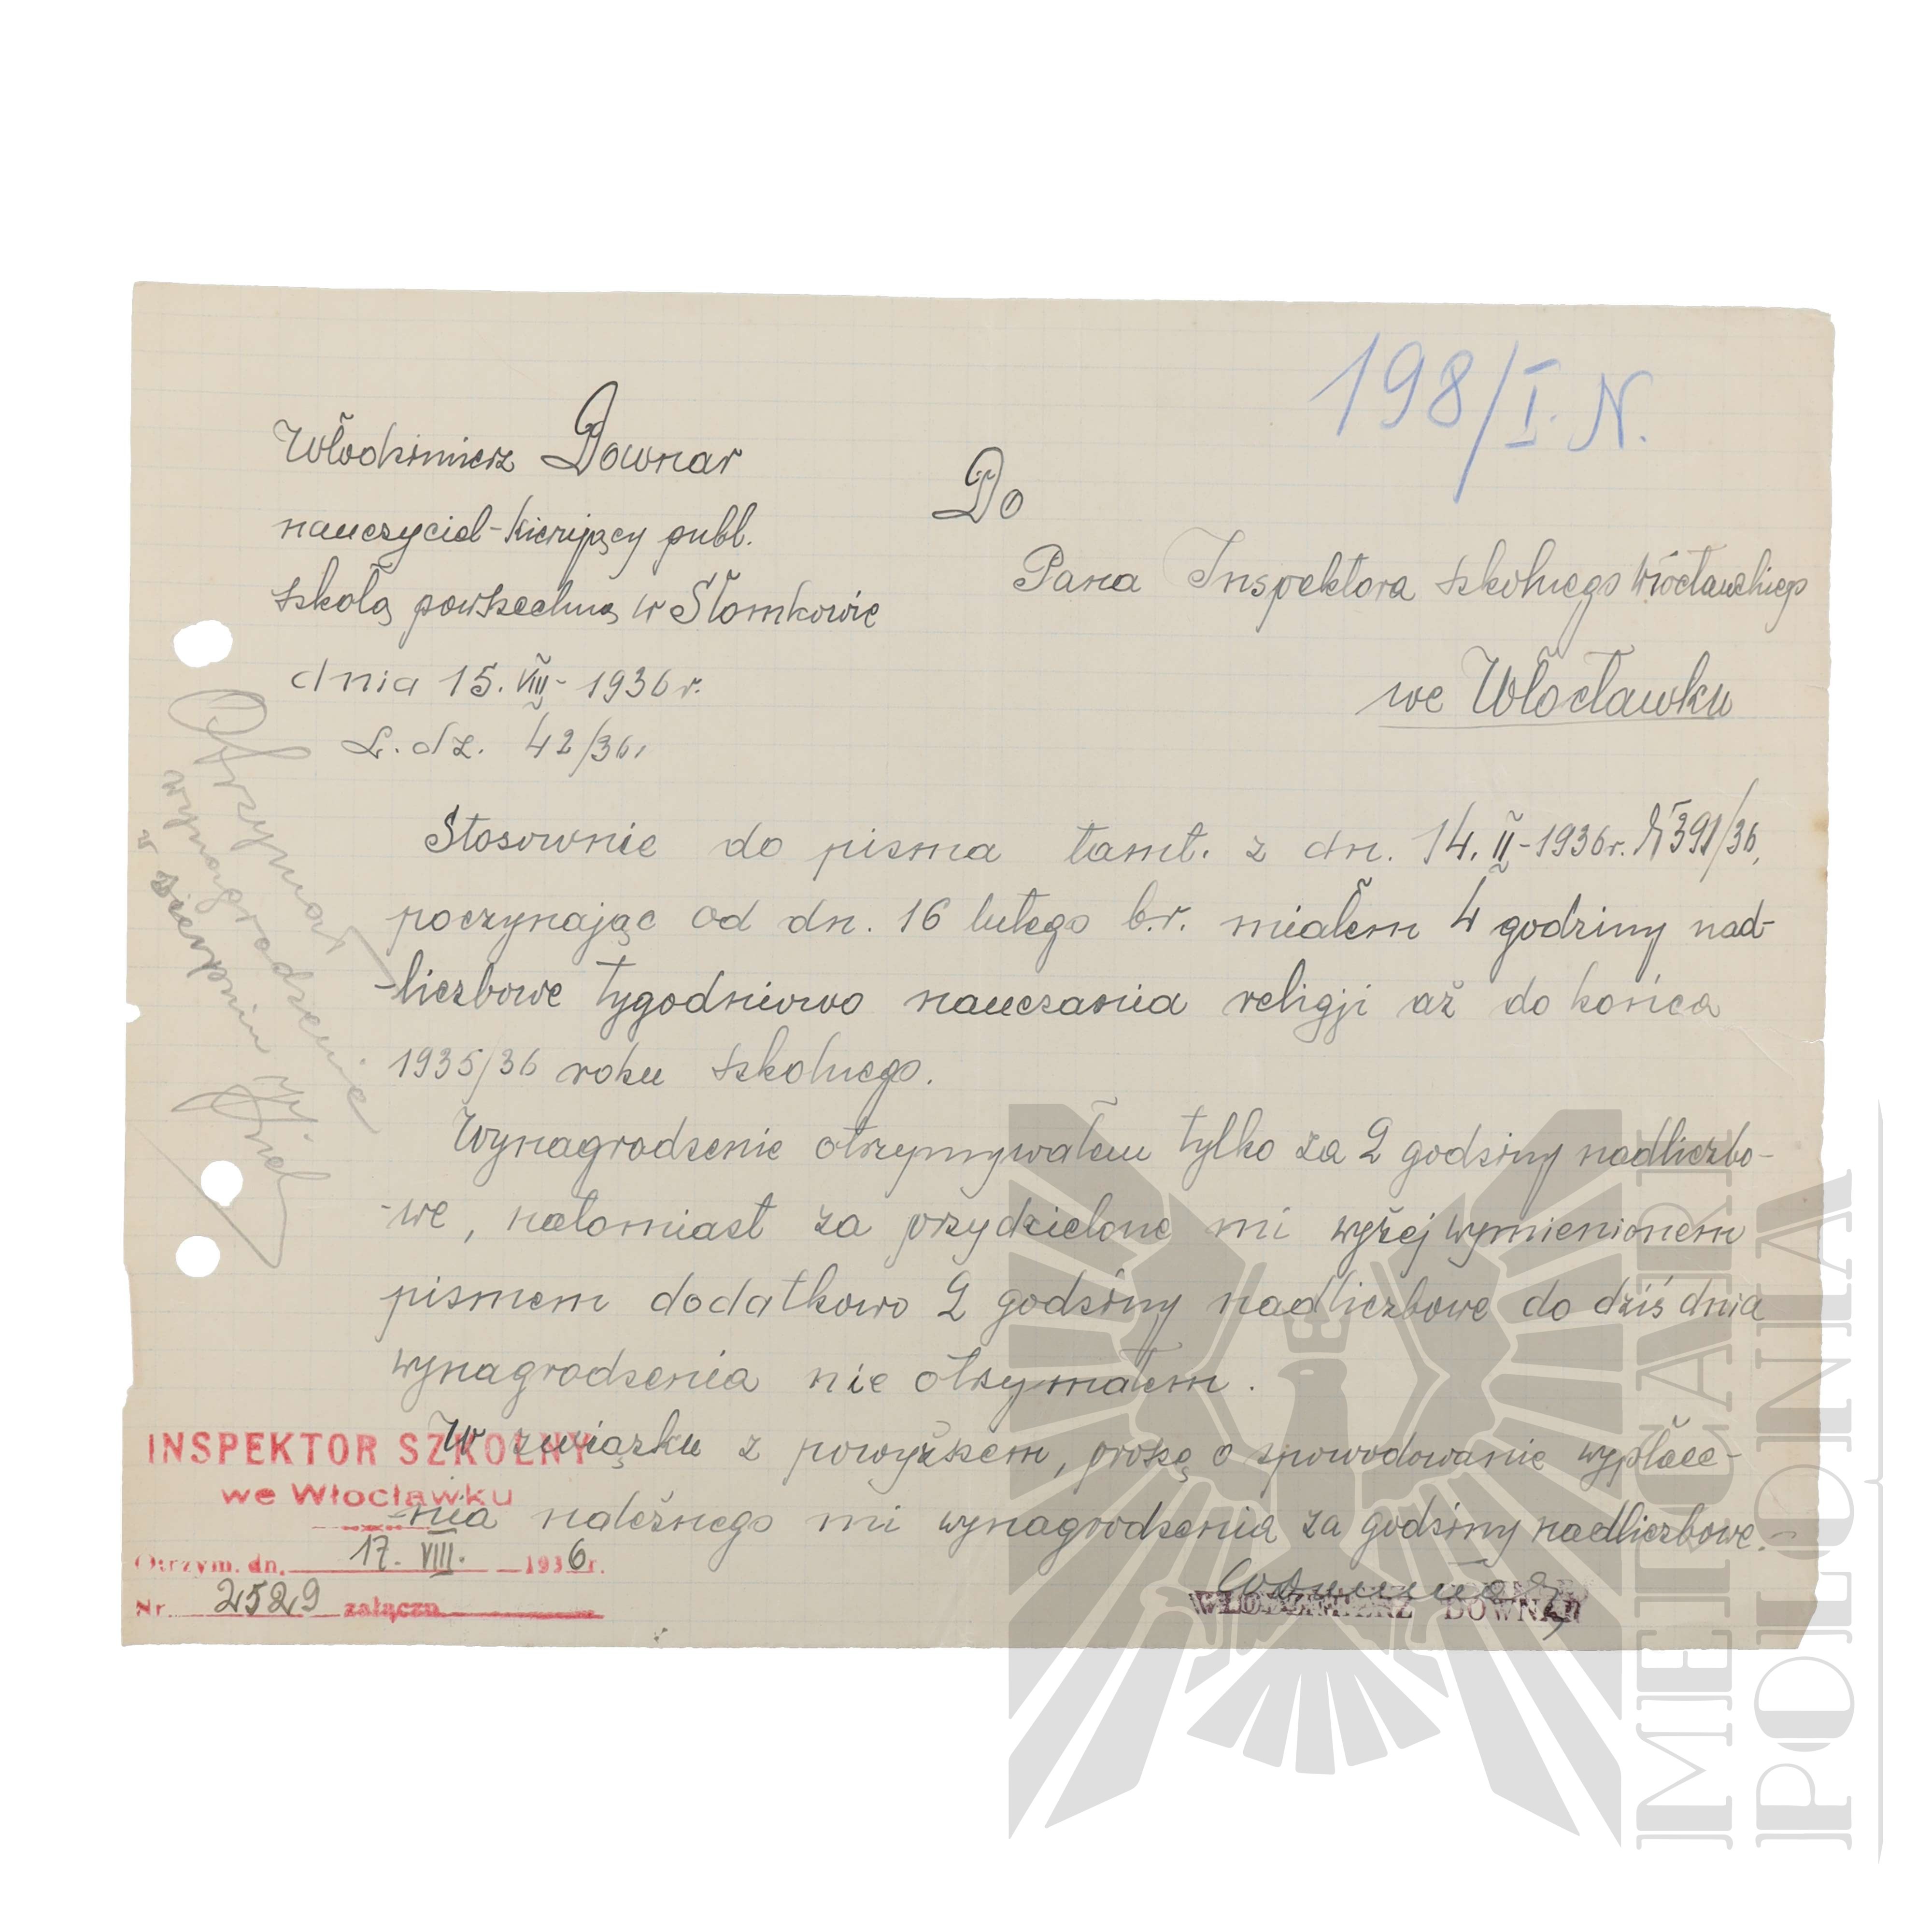 198/I. N.
Włodzimierz Downar
nauczyciel-kierujący publ.
szkołą powszechną w Słomkowie
dnia 15. VIII - 1936 r.
L. dz. 42/36.
Do
Pana Inspektora szkolnego włocławskiego
we Włocławku
Otrzymał
wynagrodzenie
w sierpniu
Stosownie do pisma tamt. z dn. 14. II - 1936 r. № 391/36,
poczynając od dn. 16 lutego b.r. miałem 4 godziny nad-
-liczbowe tygodniowo nauczania religji aż do końca
1935/36 roku szkolnego.
Wynagrodzenie otrzymywałem tylko za 2 godziny nadliczbo-
-we, natomiast za przydzielone mi wyżej wymienionem
pismem dodatkowo 2 godziny nadliczbowe do dziś dnia
wynagrodzenia nie otrzymałem.
W związku z powyższem, proszę o spowodowanie wypłace-
-nia należnego mi wynagrodzenia za godziny nadliczbowe.-
WŁODZIMIERZ DOWNAR
INSPEKTOR SZKOLNY
we Włocławku
Otrzym. dn. 17. VIII. 1936 r.
Nr. 2529 załączn.
MILITARIA
POLONIA